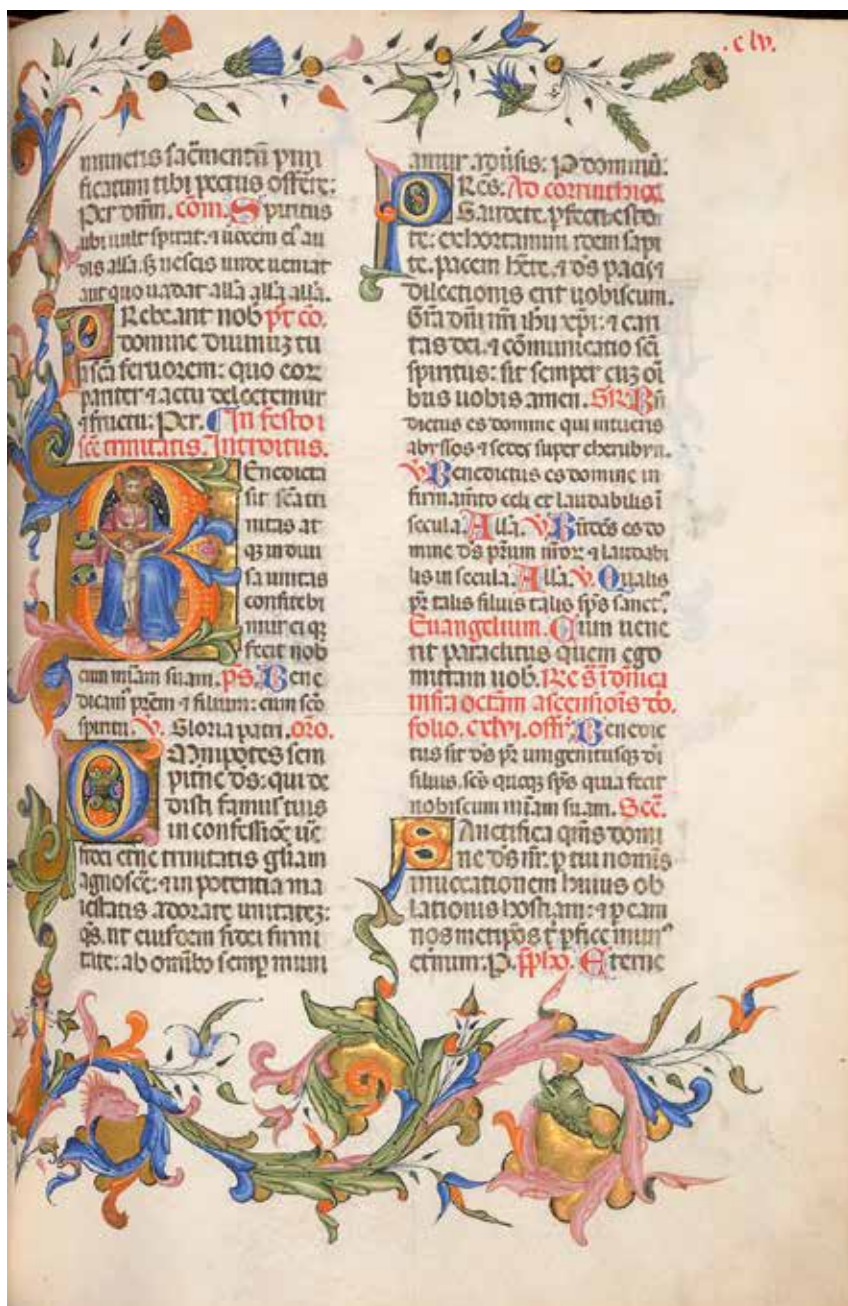 .clv.
muneris sac̄mentū puri
ficatum tibi pectus offerre:
Per dn̄m. cōm. Spiritus
ubi uult spirat. ⁊ uocem eiꝰ au
dis all̄a. sꝫ nescis unde ueniat
aut quo uadat all̄a all̄a all̄a.
PRebeant nob̄ pt̄ cō.
domine diuinuꝫ tu
i sc̄a feruorem: quo eor
pariter ⁊ actu delectemur
⁊ fructu: Per. In festo i
sc̄e trinitatis. Introitus.
BEnedicta
sit sc̄a tri
nitas at
qꝫ indiui
sa unitas
confitebi
mur ei qꝫ
fecit nob̄
cum mīam suam. ps̄. Bene
dicam̄ prēm ⁊ filium: cum sc̄o
spiritu. V. Gloria patri. orō.
OMnipōtēs sem
pit̄ne ds̄: qui de
disti famul̄ tuis
in confessiōe ue̅
fidei et̄ne trinitatis gl̄iam
agnosc̄e: ⁊ in potentia ma
iestatis adorare unitateꝫ:
qs̄. ut eiusdem fidei firmi
tate: ab omībꝰ semp̱ muni
amur aduīsis: P̱ dominū.
PRēs: Ad corrinthios.
S. audete. p̱fecti esto
te: exhortamini idem sapi
te. pacem h̄ete. ⁊ ds̄ pacis ⁊
dilectionis erit uobiscum.
Grā dn̄i nr̄i ihu xp̄i: ⁊ cari
tas dei. ⁊ cōmunicatio sc̄i
spiritus: sit semper cuꝫ oī
bus uobis amen. GR. Bn̄
dictus es domine qui intueris
abyssos ⁊ sedes super cherubyn.
V. Benedictus es domine in
firmam̄to celi et laudabilis ī
secula. All̄a. V. Bn̄dc̄s es do
mine ds̄ pr̄um nr̄or: ⁊ laudabi
lis in secula. All̄a. V. Qualis
pr̄ talis filius talis sp̄s sanctꝰ.
Euangelium. Cum uene
rit paraclitus quem ego
mittam uob̄. Re s̄ i dōnica
infra octam ascensiōis dō.
folio. cxlvi. offr̄. Benedic
tus sit ds̄ pr̄ unigenitusqꝫ dī
filius. sc̄s quoqꝫ sp̄s quia fecit
nobiscum mīam suam. Sec̄.
SAnctifica qm̄s domi
ne ds̄ nr̄. p̱ tui nomīs
inuocationem huius ob
lationis hostiam: ⁊ p̱ eam
nos metip̄os t̄ p̱fice munꝰ
et̄num: P̱. p̄pho. Eterne